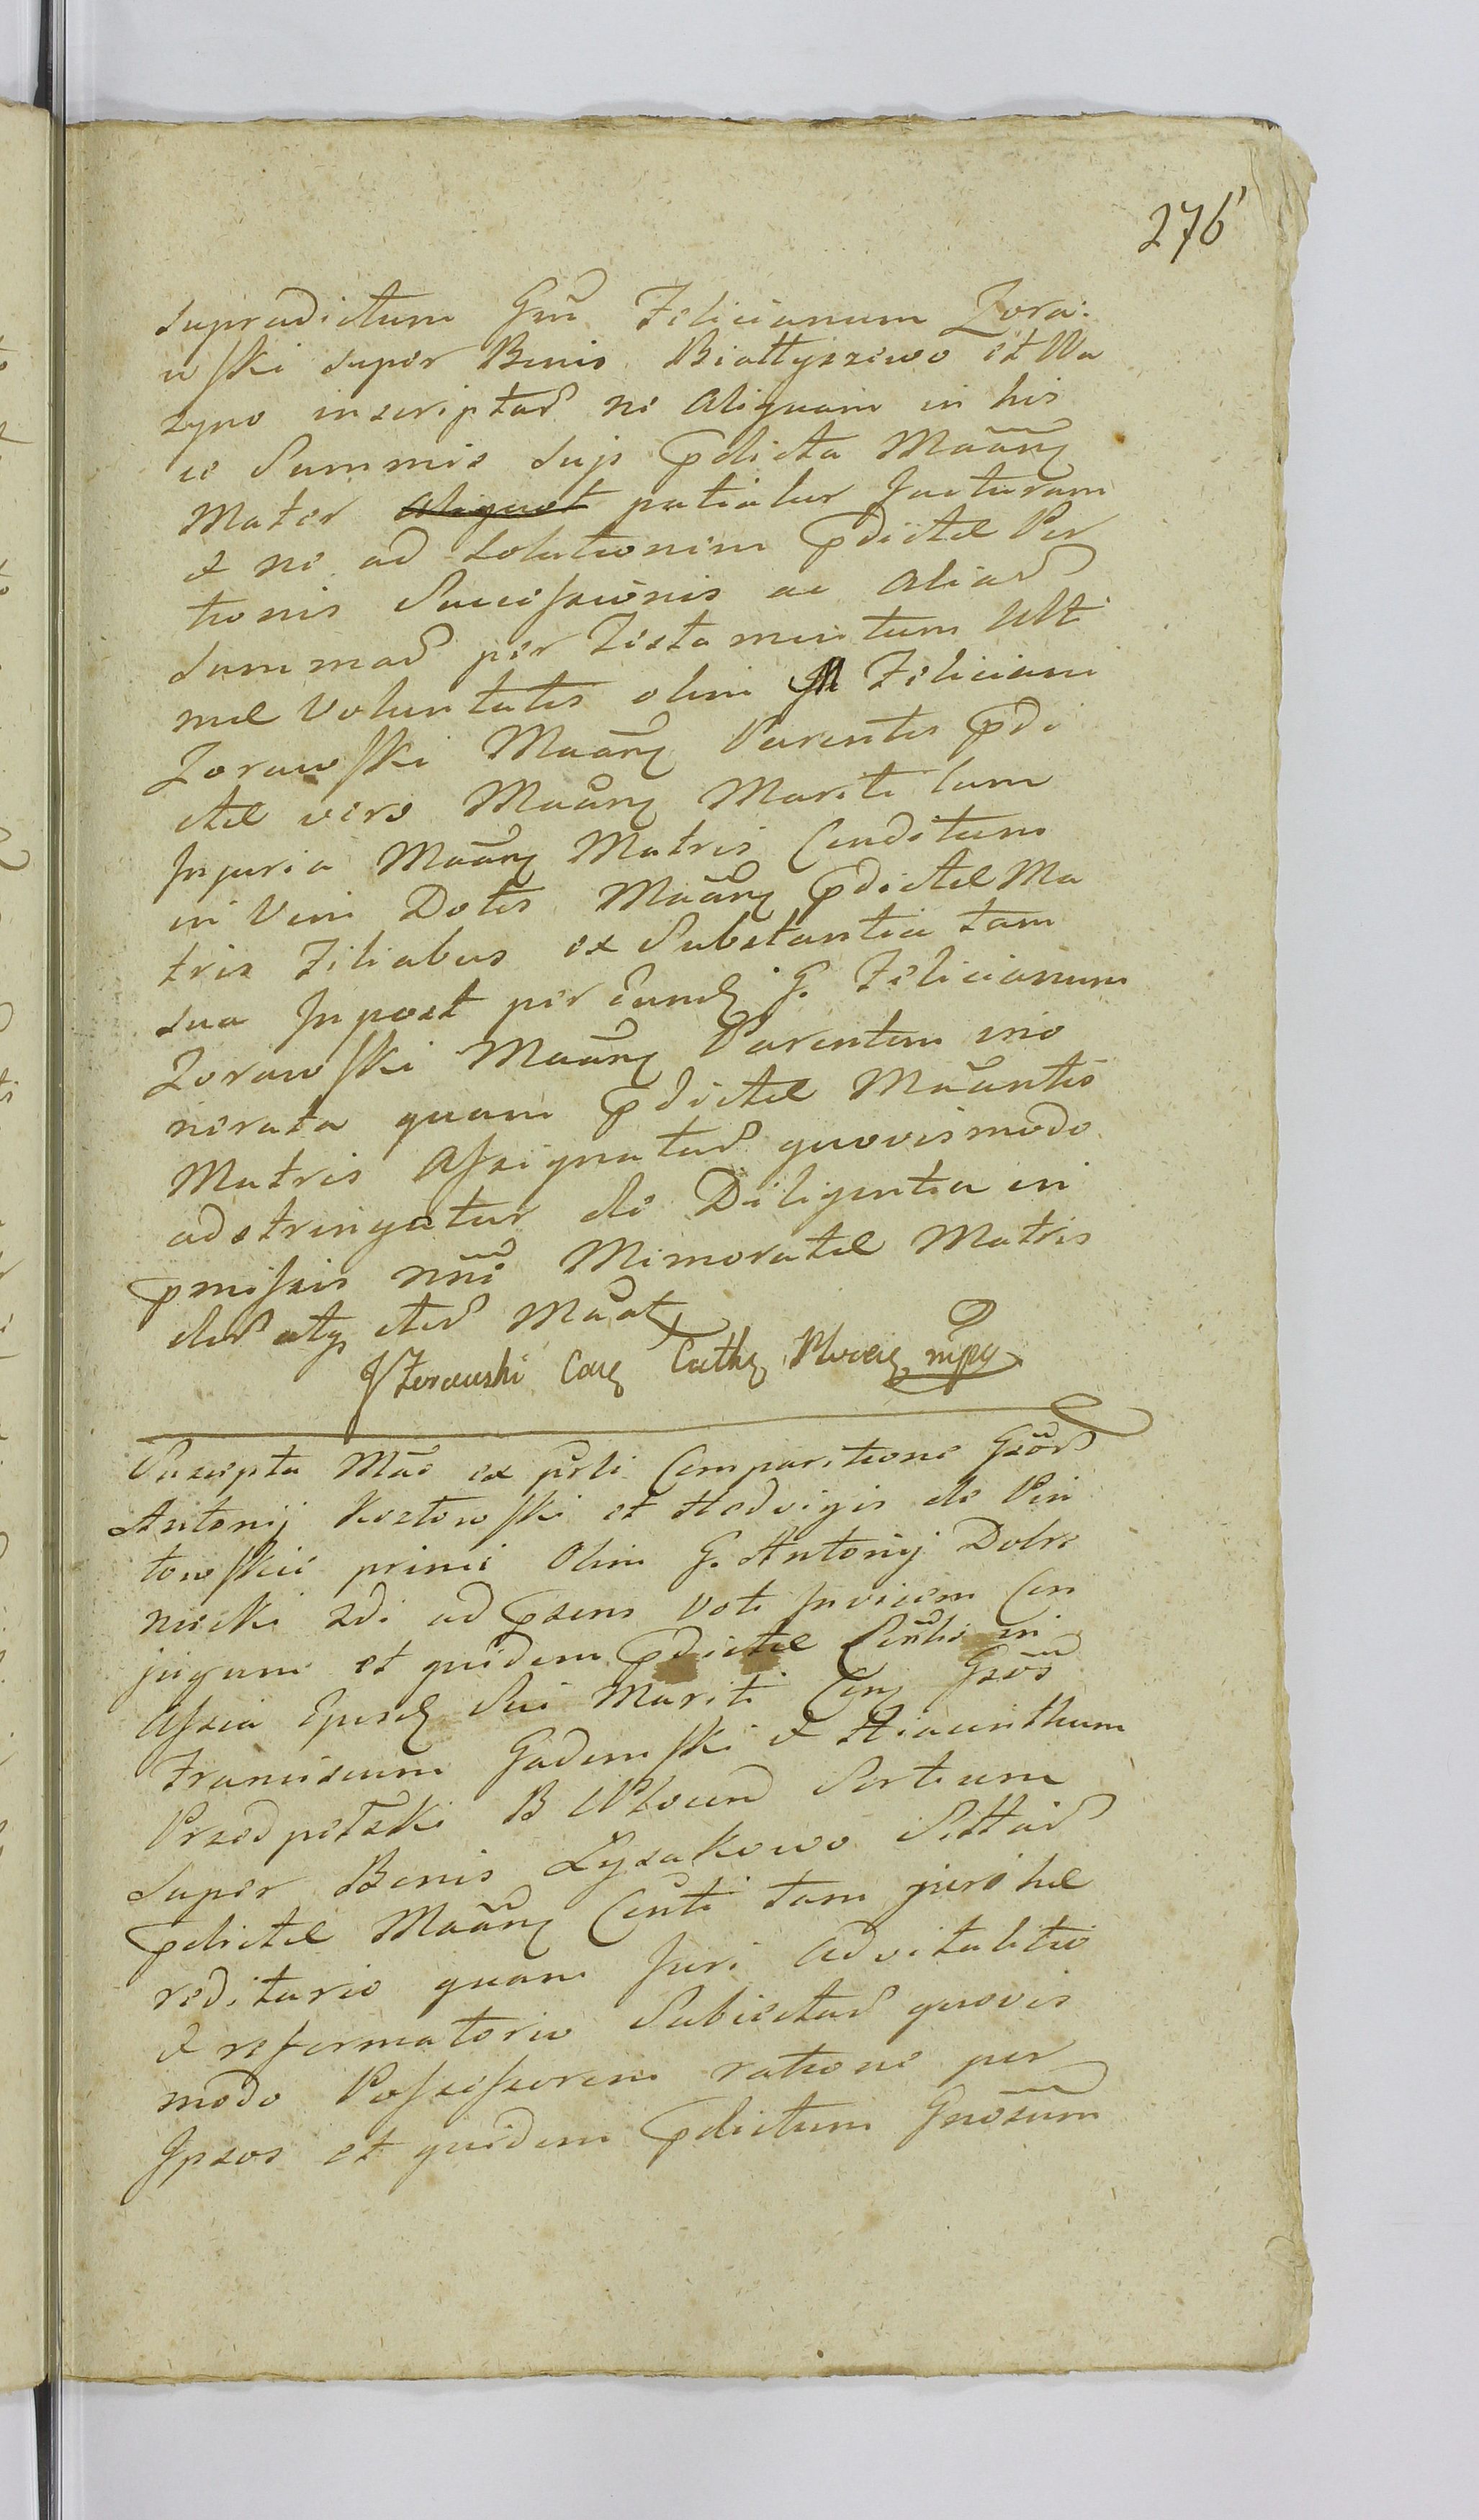 276
supradictum Gnū Felicianum Zora:
wski super Bonis Białłyszewo et Wa
zyno inscriptas ne aliquam in his
ce Summis sup pdicta Maanς
Mater aliquot patiatur Jacturam
et ne ad Solutionem pdictæ Por
tionis Successionis ac alias
Summas per Testamentum Ulti
mæ Voluntatis olim Feliciani
Zorawski Maanς Parentis pdi
ctæ vero Maanς Mariti cum
Injuria Maanς Matris Conditum
in Vim Dotis Maanς pdictæ Ma
tris Filiabus ex Substantia tam
sua Inpost per Eundς G. Felicianum
Zorawski Maanς Parentem ino
nerata quam pdictæ Maantis
Matris Assignatas quovismodo
adstringatur de Diligentia in
pmissis nnē Memoratæ Matris
suæ atq; Maat
JZorawski Caς Cathς Plocenς mpp
Suscepta Mãe ex psli Comparitione Gsōr
Antonij Kozłowski et Hedvigis de Pin
towskie primi Olim G. Antonij Dobr
niecki 2di ad psens Voti Invicem Con
jugum et quidem pdictæ Consti in
Assia Ejusdς Sui Mariti Conς Gsōs
Franciscum Gadomski et Hiacinthum
Przedpełski B Plocen Sortium
super Bonis Łysakowo Sittas
pdictæ Maanς Conti tam jure hæ
reditario quam Juri advitalitio
et reformatorio Subjectas quovis
modo Possessorem ratione per
Ipsos et quidem pdictum Gnōsum